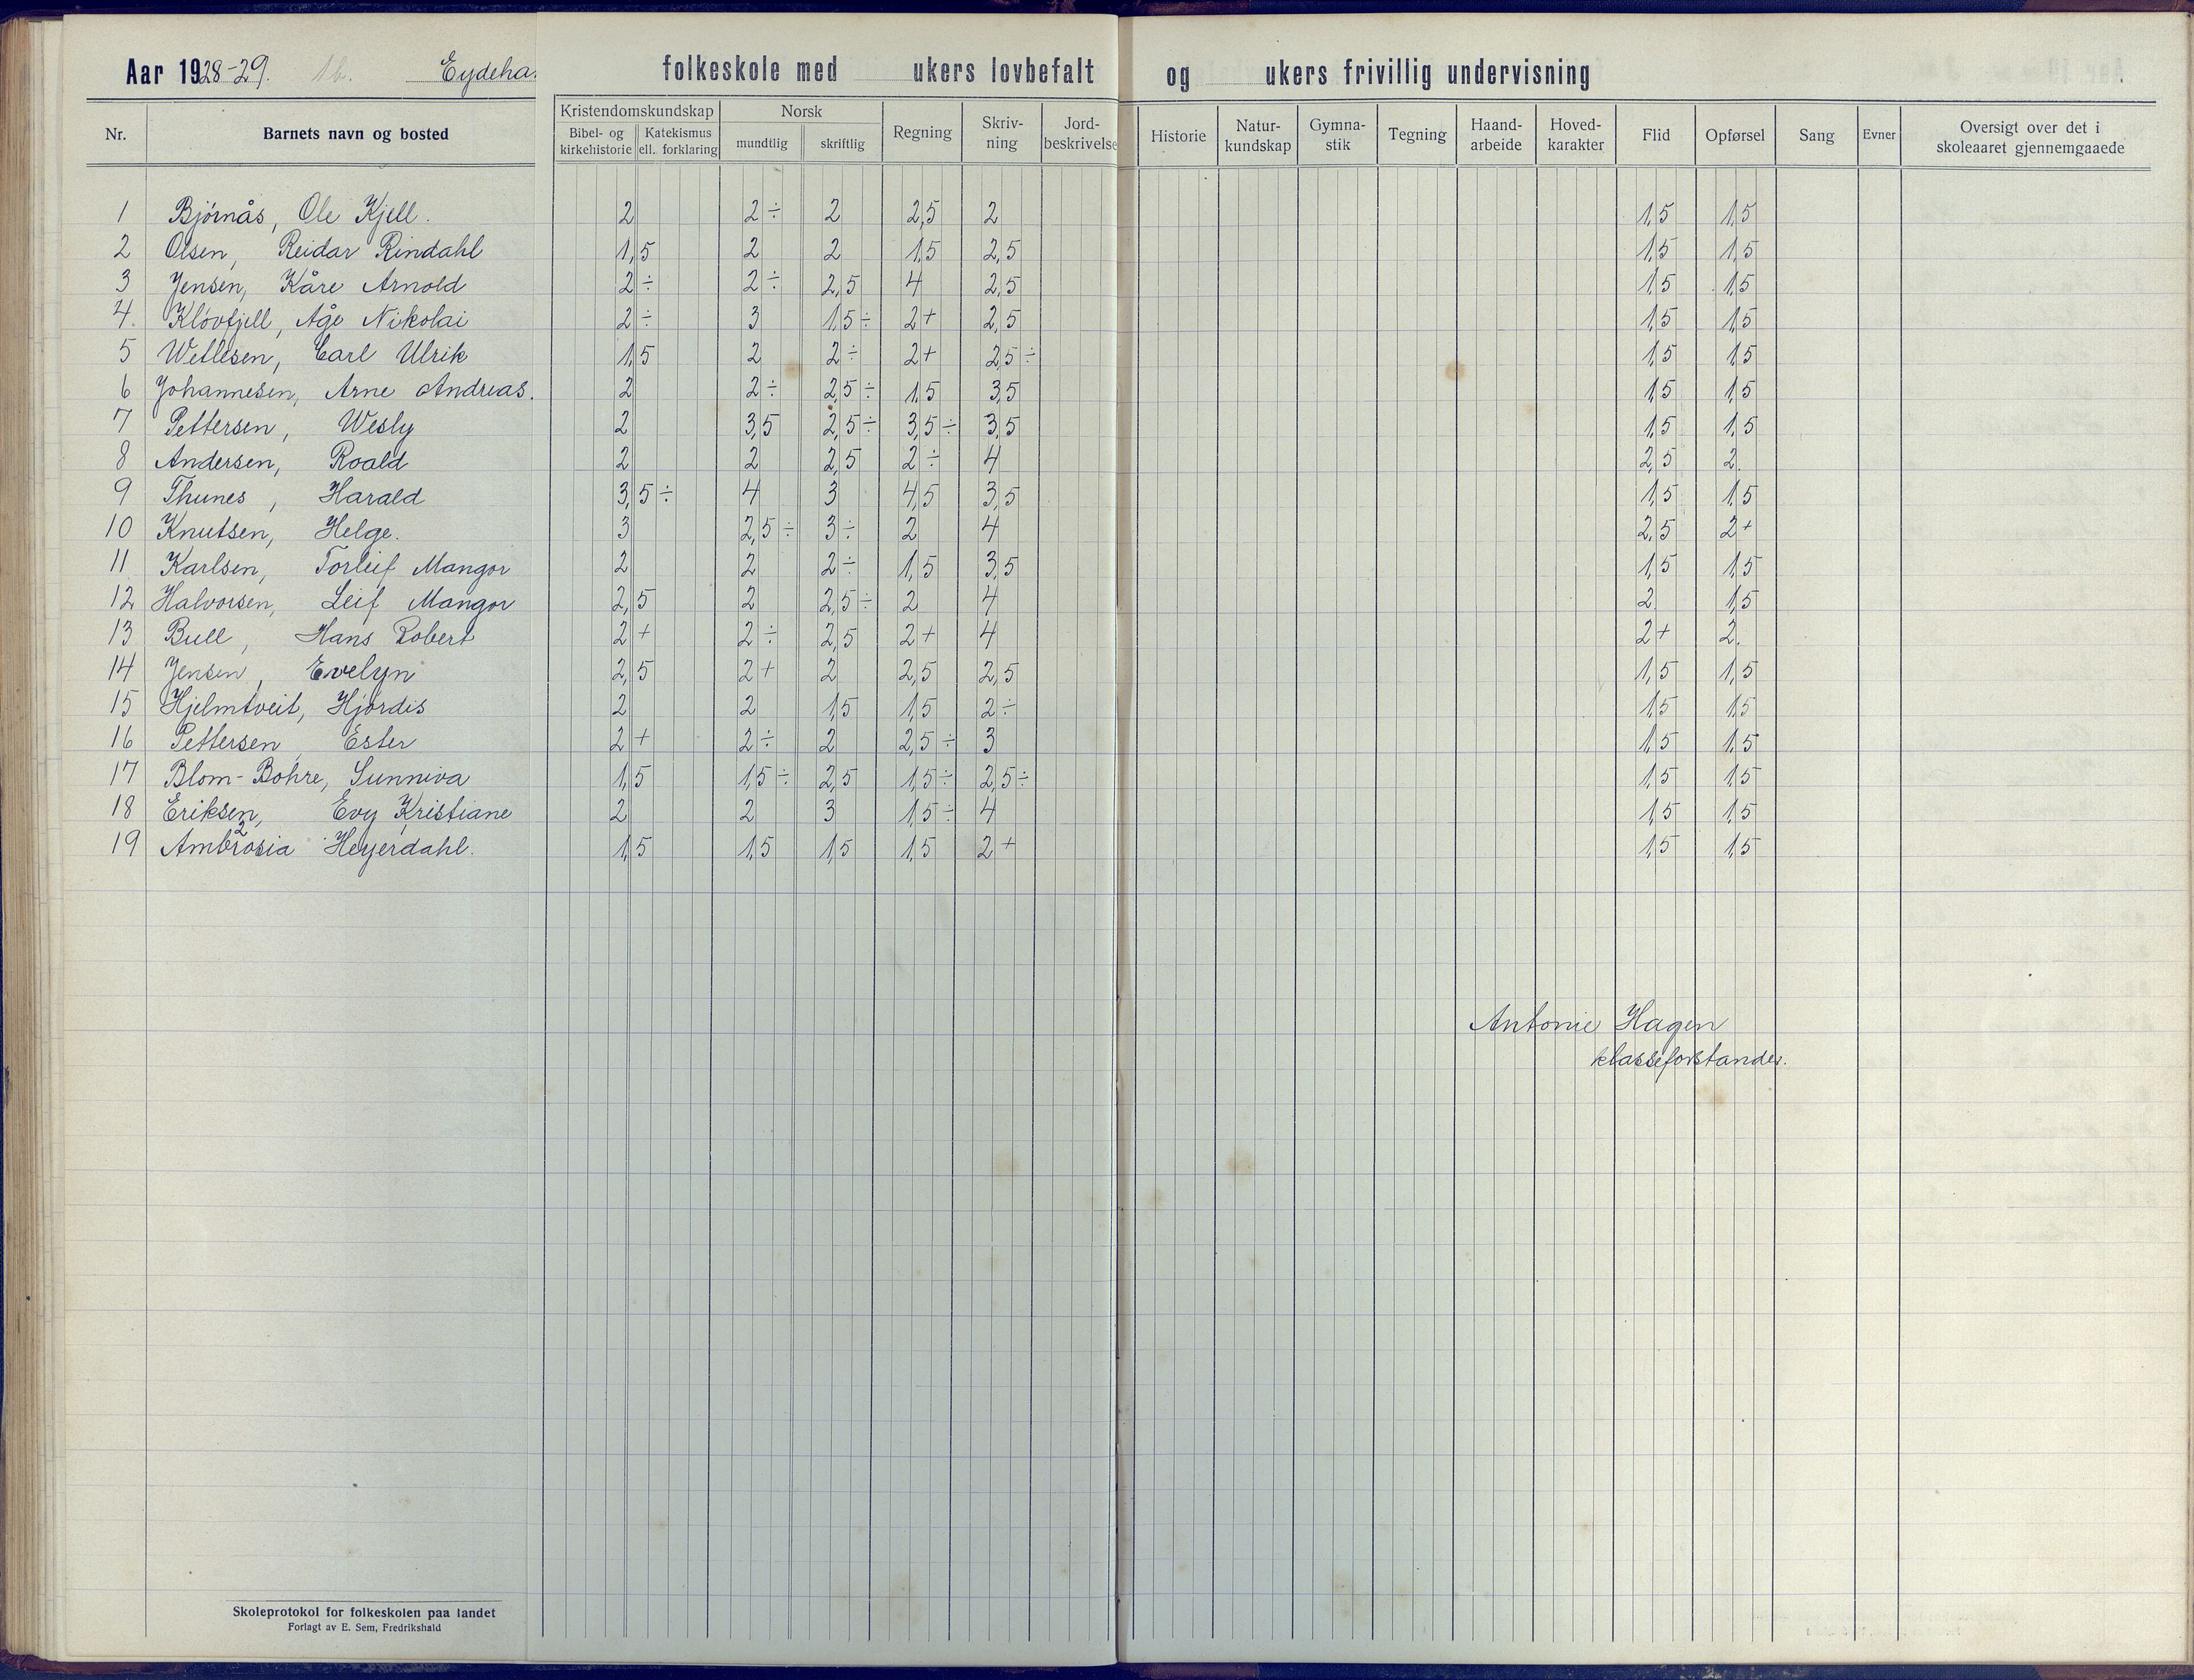 Aar 1928-29. 1b. Eydeha. folkeskole med ukers lovbefalt og ukers frivillig undervisning
Nr. Barnets navn og bosted Kristendomskundskap Bibel- og kirkehistorie Katekismus ell. forklaring Norsk mundtlig skriftlig Regning Skriv-ning Jord-beskrivelse Historie Natur-kundskap Gymna-stik Tegning Haand-arbeide Hoved-karakter Flid Opførsel Sang Evner Oversigt over det i skoleaaret gjennemgaaede
1 Bjørnås, Ole Kjell. 2 2÷ 2 2,5 2 1,5 1,5
2 Olsen, Reidar Rindahl 1,5 2 2 1,5 2,5 1,5 1,5
3 Jensen, Kåre Arnold 2÷ 2÷ 2,5 4 2,5 1,5 1,5
4. Kløvfjell, Åge Nikolai 2÷ 3 1,5÷ 2+ 2,5 1,5 1,5
5 Wetlesen, Carl Ulrik 1,5 2 2÷ 2+ 2,5÷ 1,5 1,5
6 Johannesen, Arne Andreas. 2 2÷ 2,5÷ 1,5 3,5 1,5 1,5
7 Pettersen, Wesly 2 3,5 2,5÷ 3,5÷ 3,5 1,5 1,5
8 Andersen, Roald 2 2 2,5 2÷ 4 2,5 2.
9 Thunes, Harald 3,5÷ 4 3 4,5 3,5 1,5 1,5
10 Knutsen, Helge. 3 2,5÷ 3÷ 2 4 2,5 2+
11 Karlsen, Torleif Mangor 2 2 2÷ 1,5 3,5 1,5 1,5
12 Halvorsen, Leif Mangor 2,5 2 2,5÷ 2 4 2 1,5
13 Bull, Hans Robert 2+ 2÷ 2,5 2+ 4 2+ 2.
14 Jensen, Evelyn 2,5 2+ 2 2,5 2,5 1,5 1,5
15 Hjelmtveit, Hjørdis 2 2 1,5 1,5 2÷ 1,5 1,5
16 Pettersen Ester 2+ 2÷ 2 2,5÷ 3 1,5 1,5
17 Blom-Bøhre, Sunniva 1,5 1,5÷ 2,5 1,5÷ 2,5÷ 1,5 1,5
18 Eriksen, Evy Kristiane 2 2 3 1,5÷ 4 1,5 1,5
19 Ambrosia Heyerdahl. 1,5 1,5 1,5 1,5 2+ 1,5 1,5
Antonie Hagen
klasseforstander.
Skoleprotokol for folkeskolen paa landet
Forlagt av E. Sem, Fredrikshald